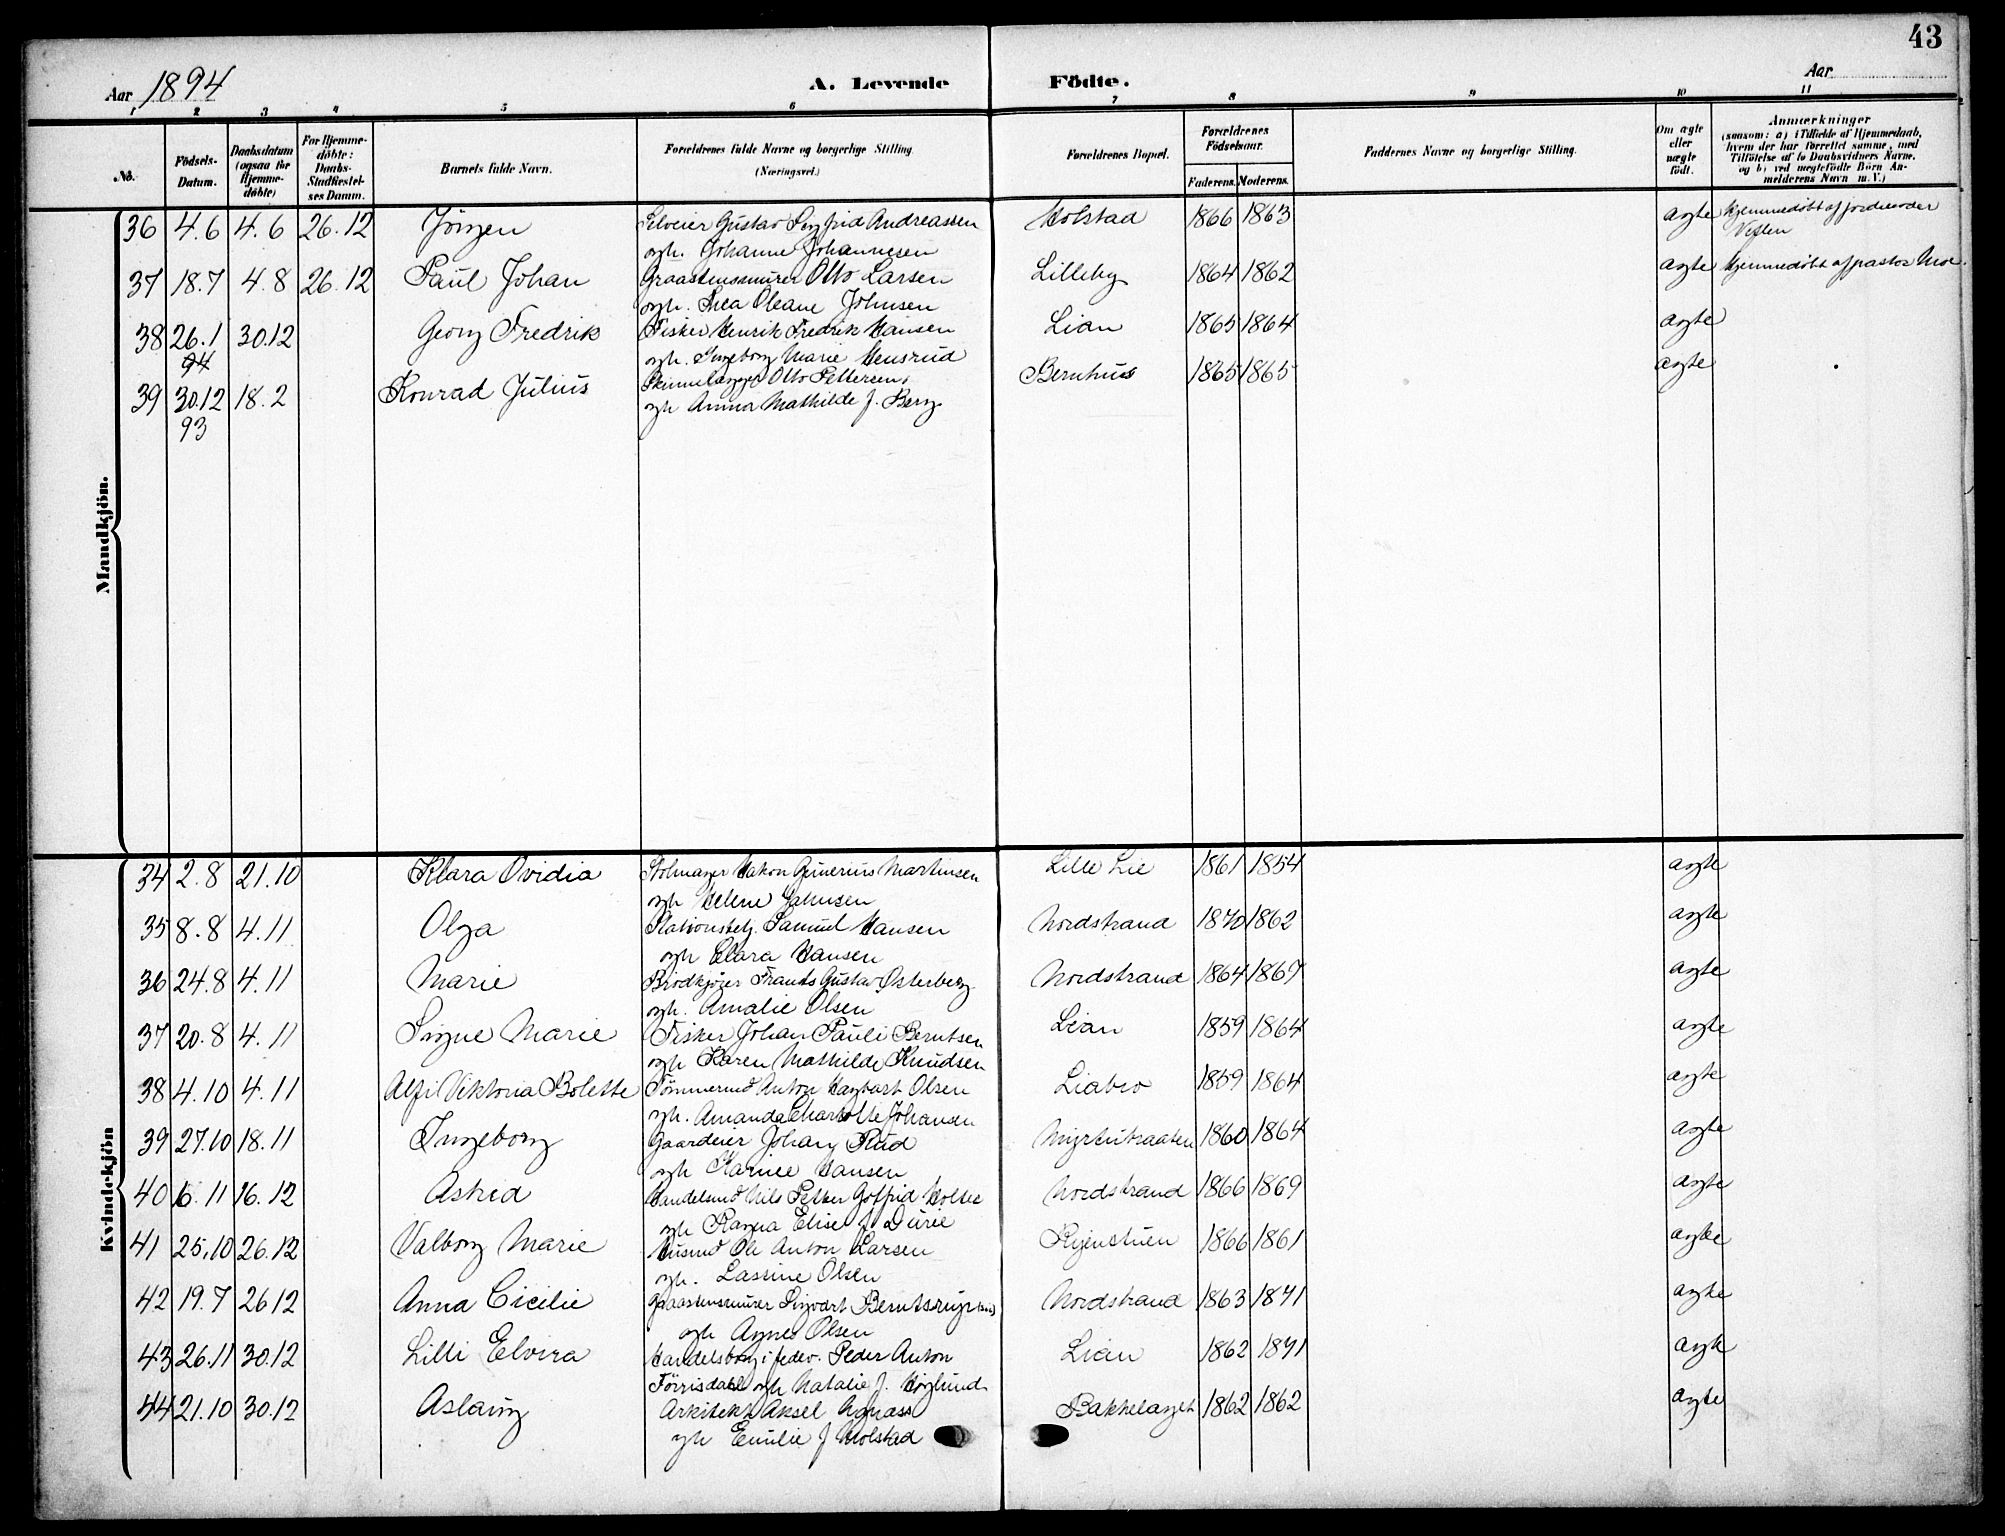 43
Aar 1894 A. Levende Födte. Aar
1 2 3 4 5 6 7 8 9 10 11
No. Födsels-Datum. Daabsdatum (ogsaa for Hjemme-döbte) For Hjemme-döbte: Daabs-Stadfæstel-ses Datum. Barnets fulde Navn. Forældrenes fulde Navne og borgerlige Stilling (Næringsvei.) Forældrenes Bopæl. Forældrenes Födselsaar. Faderens. Moderens. Faddernes Navne og borgerlige Stilling. Om ægte eller uægte födt. Anmærkninger (saasom: a) i Tilfælde af Hjemmedaab, hvem der har forrettet samme, med Tilföielse af to Daabsvidners Navne, og b) ved uægtefödte Börn An-melderens Navn m. V.)
Mandkjön.
36 4.6 4.6 26.12 Jörgen Gustav Sigfrid Andreassen Holstad 1866 1863 ægte hjemmedøbt af jordemoder
ogh. Johanne Johannesen
37 18.7 4.8 26.12 Paul Johan Graastensmurer Otto Larsen Lilleby 1864 1862 ægte hjemmedøbt af pastor Moe.
ogh. Thea Oleane Johnsen
38 26.1 30.12 Georg Fredrik Fisker Henrik Fredrik Hansen Lian 1865 1864 ægte
94 ogh. Ingeborg Marie Hensrud
39 30.12 18.2 Konrad Julius Otto Pettersen Bernhus 1865 1865 ægte
93 ogh Anna Mathilde f. Berg
Kvindekjön
34 2.8 21.10 Klara Ovidia Stolmager Hakon Gunerius Martinsen Lille Lie 1861 1854 ægte
ogh Helene Johnsen
35 8.8 4.11 Olga Stationsbetj. Samuel Hansen Nordstrand 1870 1862 ægte
ogh Clara Hansen
36 24.8 4.11 Marie Brödkjører Frants Gustav Østerberg Nordstrand 1864 1867 ægte
ogh. Amalie Olsen
37 20.8 4.11 Signe Marie Fisker Johan Pauli Berntsen Lian 1859 1864 ægte
ogh Karen Mathilde Knudsen
38 4.10 4.11 Alfi Viktoria Bolette Tömmermd Anton Hagbart Olsen Liabro 1859 1864 ægte
ogh. Amanda Charlotte Johansen
39 27.10 18.11 Ingeborg Gaardeier Johan Rud 1860 1864 ægte
ogh Karine Hansen
40 6.11 16.12 Astrid Handelsmd Nils Petter Gotfrid Holter Nordstrand 1866 1869 ægte
ogh Ragna Elise f. Durie
41 25.10 26.12 Valborg Marie Husmd Ole Anton Larsen Ryenstuen 1866 1861 ægte
ogh. Lassine Olsen
42 19.7 26.12 Anna Cicilie Graastensmurer Sigvart Berntsen Nordstrand 1863 1871 ægte
ogh Agnes Olsen
43 26.11 30.12 Lilli Elvira Handelsborg i fedev. Peder Anton Lian 1862 1871 ægte
Förrisdahl ogh Natalie f. Höglund
44 21.10 30.12 Aslaug Arkitekt Aksel Bakkelaget 1862 1862 ægte
ogh Emilie f Holstad